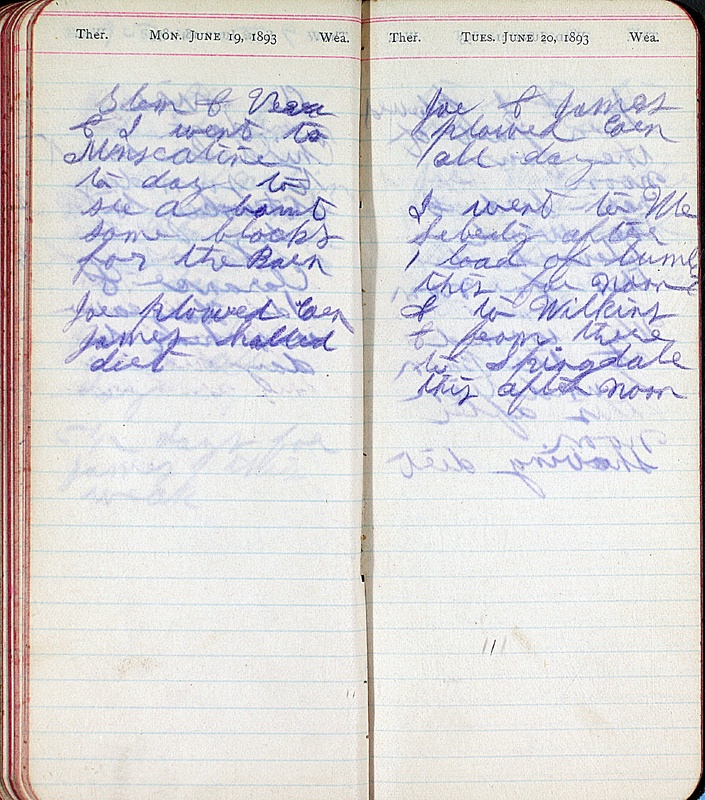 Ther. Mon. June 19, 1893 Wea.
Stem & Vera
& I went to
Muscatine
to day to
see a bout
some blocks
for the Barn
Joe plowed Corn
James halled
diet
Ther. Tues. June 20, 1893 Wea.
Joe & James
plowed Corn
all day
I went to We
Liberty after
1 load of tumb
this for noon
& to Wilkins
& from there
to Springdale
this aftr noon